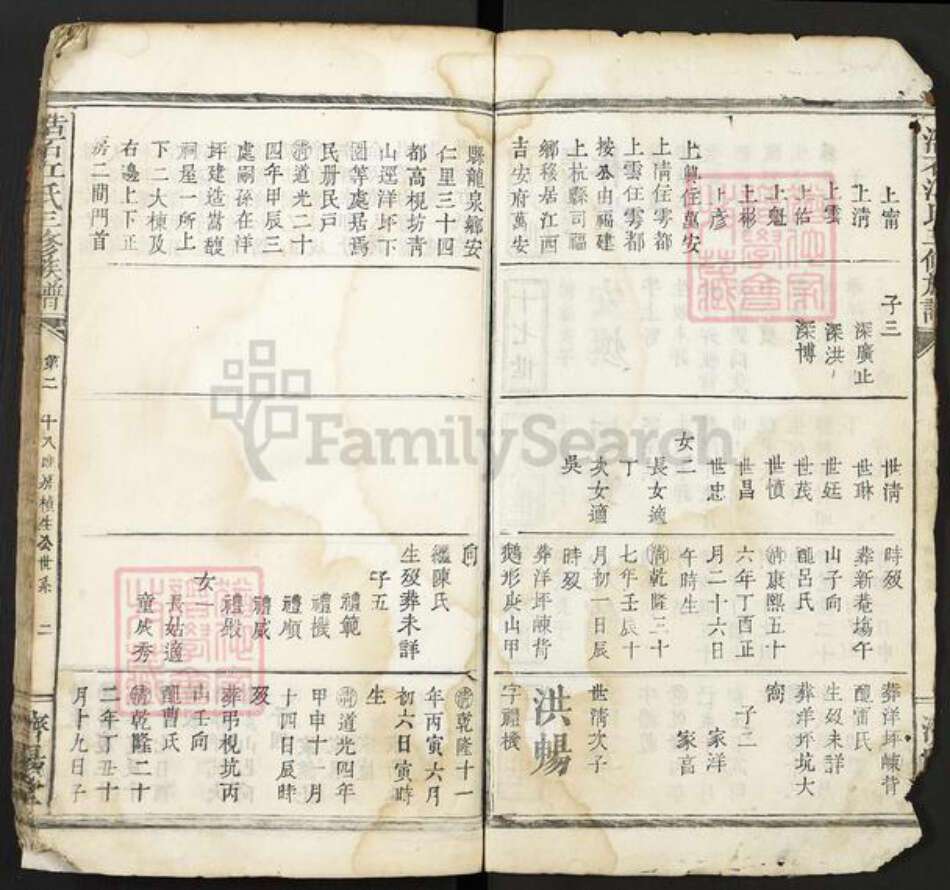 上甯
上清
上雲
上佑
上魁
上彬
上彥
上興住萬安
上清住雩都
上雲住雩都
按公由福建
上杭縣司福
鄉移居江西
吉安府萬安
子三
深廣止
深洪
深博
世清
世琳
世廷
世茂
世慎
世昌
世忠
女二
長女適
丁
次女適
吳
時歿
葬新菴塢午
山子向
醜呂氏
清康熙五十
六年丁酉正
月二十六日
午時生
清乾隆三十
七年壬辰十
月初一日辰
時歿
葬洋坪崠背
鵝形庚山甲
葬洋坪崠背
醜甯氏
生歿未詳
葬洋坪坑大
窩
子二
家洋
家高
世清次子
洪暢
字禮機
縣龍泉鄉安
仁里三十四
都高梘坊靑
山逕洋坪下
圖等處居焉
民册民戶
清道光二十
四年甲辰三
處嗣孫在洋
坪建造嵩馥
祠屋一所上
下二大棟及
右邊上下正
房二間門首
向
繼陳氏
生歿葬未詳
子五
禮範
禮機
禮順
禮威
禮殿
女一
長姑適
童成秀
清乾隆十一
年丙寅六月
初六日寅時
生
清道光四年
甲申十一月
十四日辰時
歿
葬弔梘坑丙
山壬向
醜曹氏
清乾隆二十
二年丁丑十
月十九日子
氏三修族譜
第二
二
濟陽堂
FamilySearch